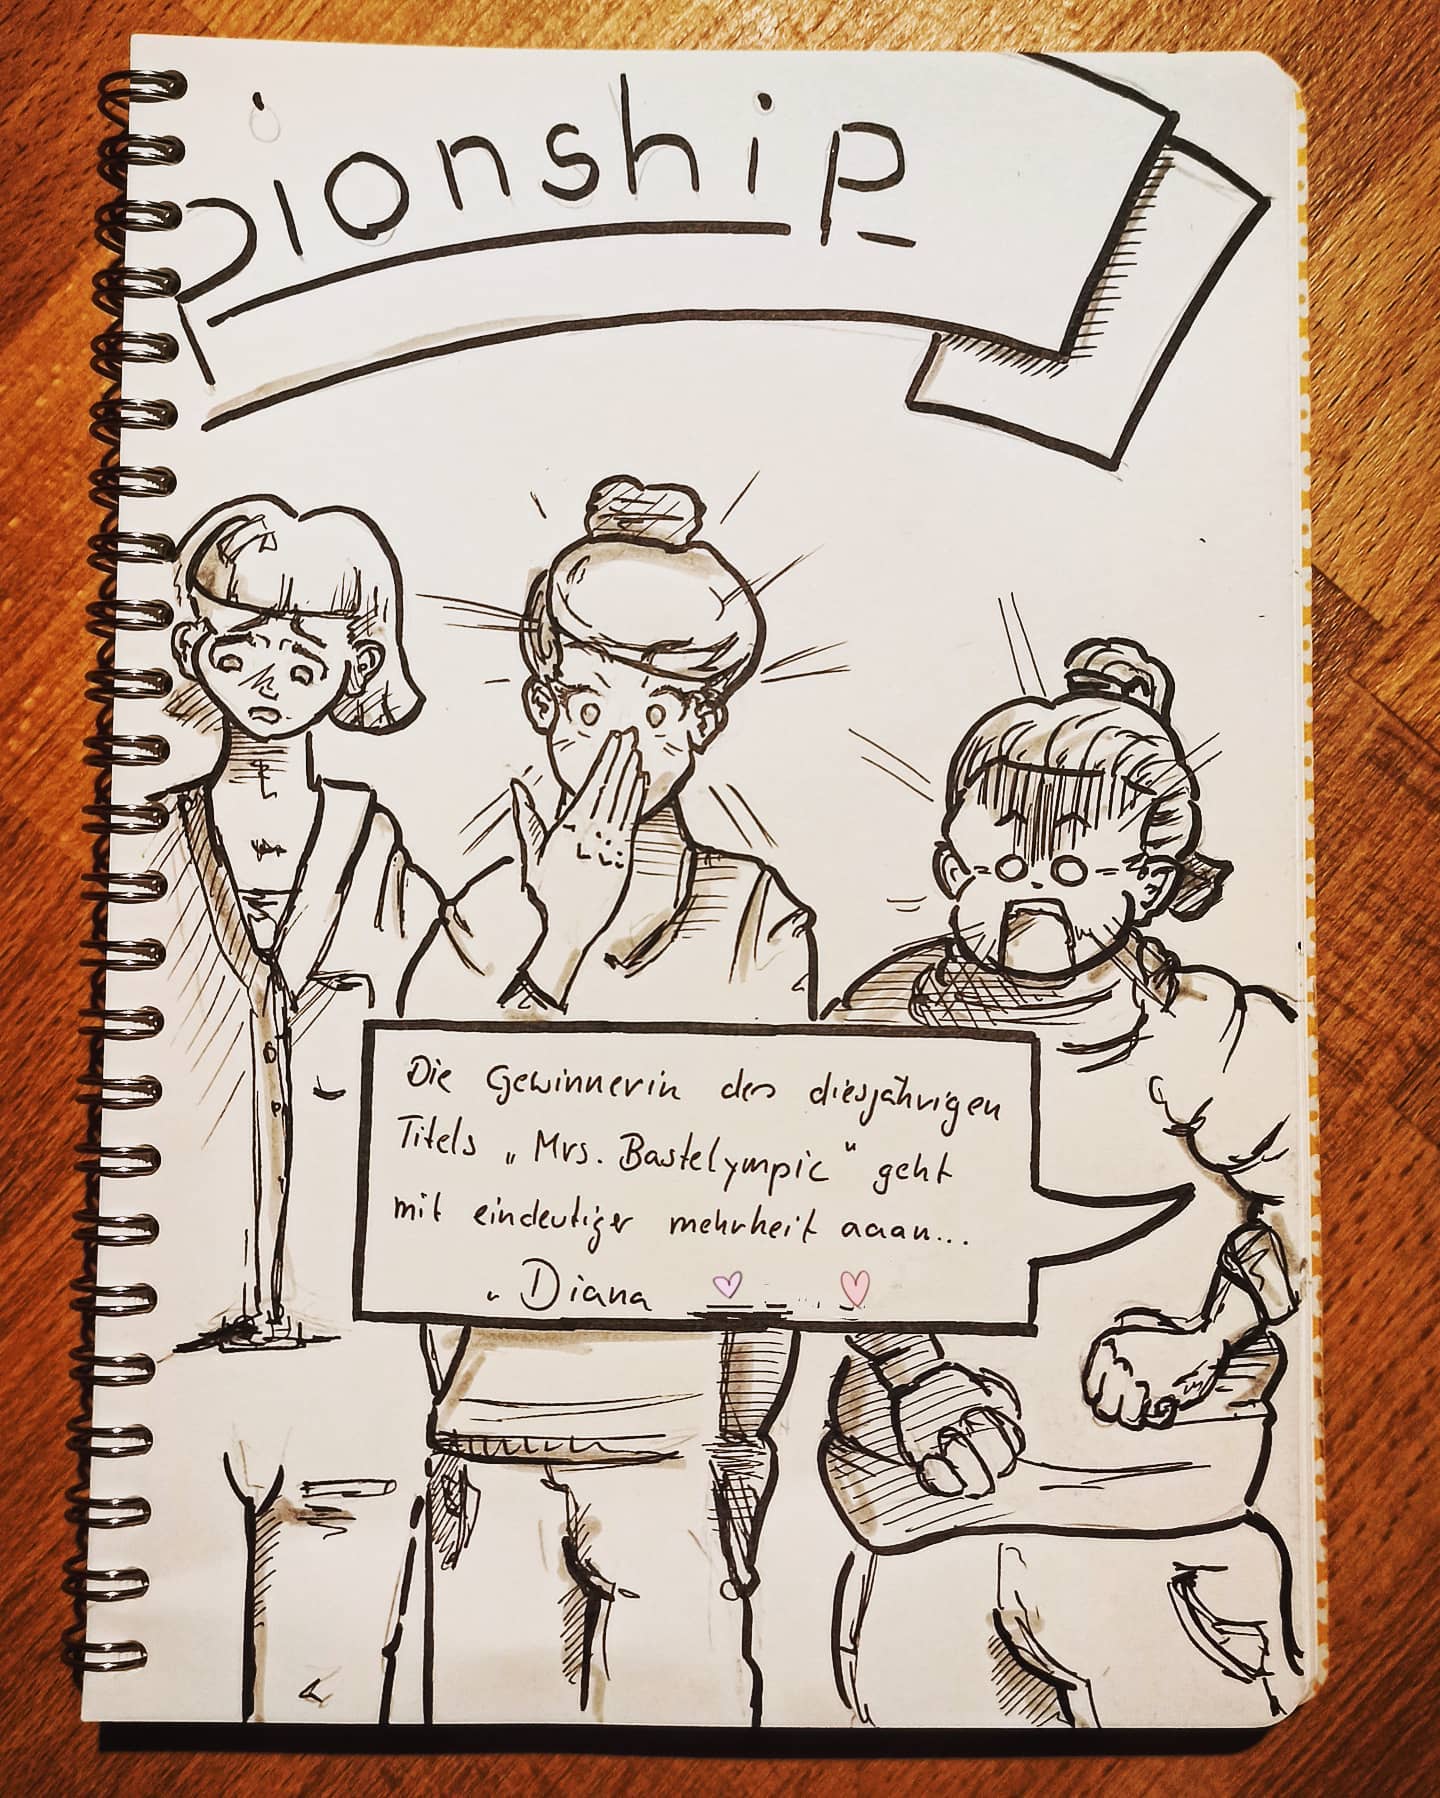 pionship
Die Gewinnerin des diesjährigen
Titels „Mrs. Bastelympic“ geht
mit eindeutiger mehrheit aaan...
„Diana